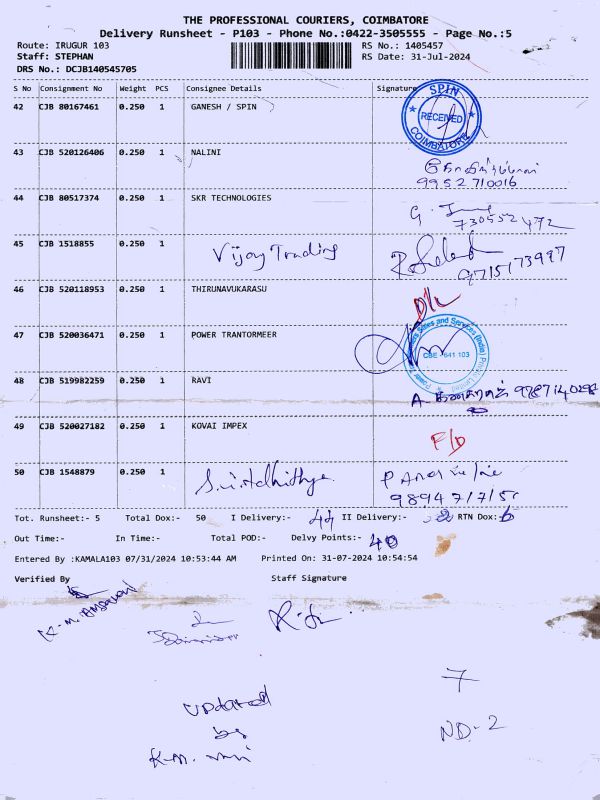 THE PROFESSIONAL COURIERS, COIMBATORE
Delivery Runsheet - P103 - Phone No.:0422-3505555 - Page No.:5
Route: IRUGUR 103 RS No.: 1405457
Staff: STEPHAN RS Date: 31-Jul-2024
DRS No.: DCJB140545705
S No Consignment No Weight PCS Consignee Details Signature
42 CJB 80167461 0.250 1 GANESH / SPIN
SPIN RECEIVED COIMBATORE
43 CJB 520126406 0.250 1 NALINI
9952710016
44 CJB 80517374 0.250 1 SKR TECHNOLOGIES
G.
730552472
45 CJB 1518855 0.250 1 Vijay Trading
9715173997
46 CJB 520118953 0.250 1 THIRUNAVUKARASU
D/L
47 CJB 520036471 0.250 1 POWER TRANTORMEER
Sales and Services (India) Private Limited
CBE - 641 103
48 CJB 519982259 0.250 1 RAVI
A.
49 CJB 520027182 0.250 1 KOVAI IMPEX
F/D
50 CJB 1548879 0.250 1
Tot. Runsheet:- 5 Total Dox:- 50 I Delivery:- 44 II Delivery:- RTN Dox:- 6
Out Time:- In Time:- Total POD:- Delvy Points:- 40
Entered By :KAMALA103 07/31/2024 10:53:44 AM Printed On: 31-07-2024 10:54:54
Verified By Staff Signature
7
Updated
by
K.M.
ND-2